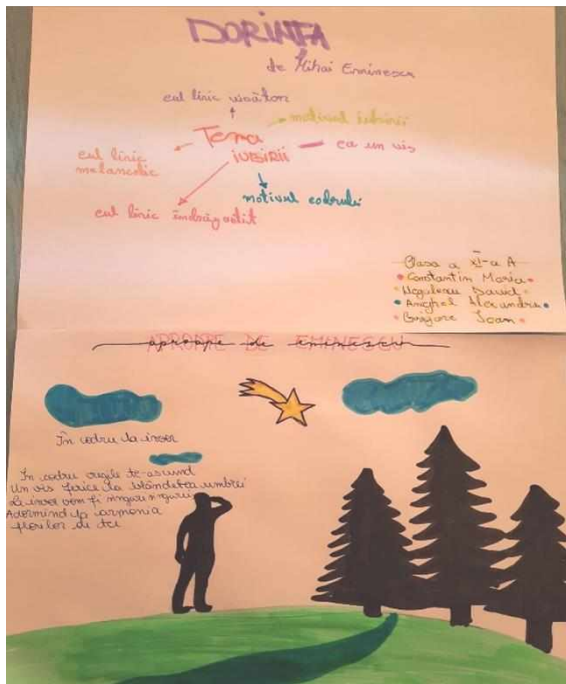 DORINȚA
de Mihai Eminescu
eul liric visător
motivul iubirii
Tema
iubirii
ca un vis
eul liric
melancolic
motivul codrului
eul liric îndrăgostit
Clasa a XI-a A
Constantin Maria
David
Anghel Alexandru
Ioan
APROAPE DE EMINESCU
aproape de eminescu
În codru la izvor
În codru te-ascund
Un vis ferice la blândețea umbrei
La izvor vom fi singuri singurei
Adormind la armonia
florilor de tei